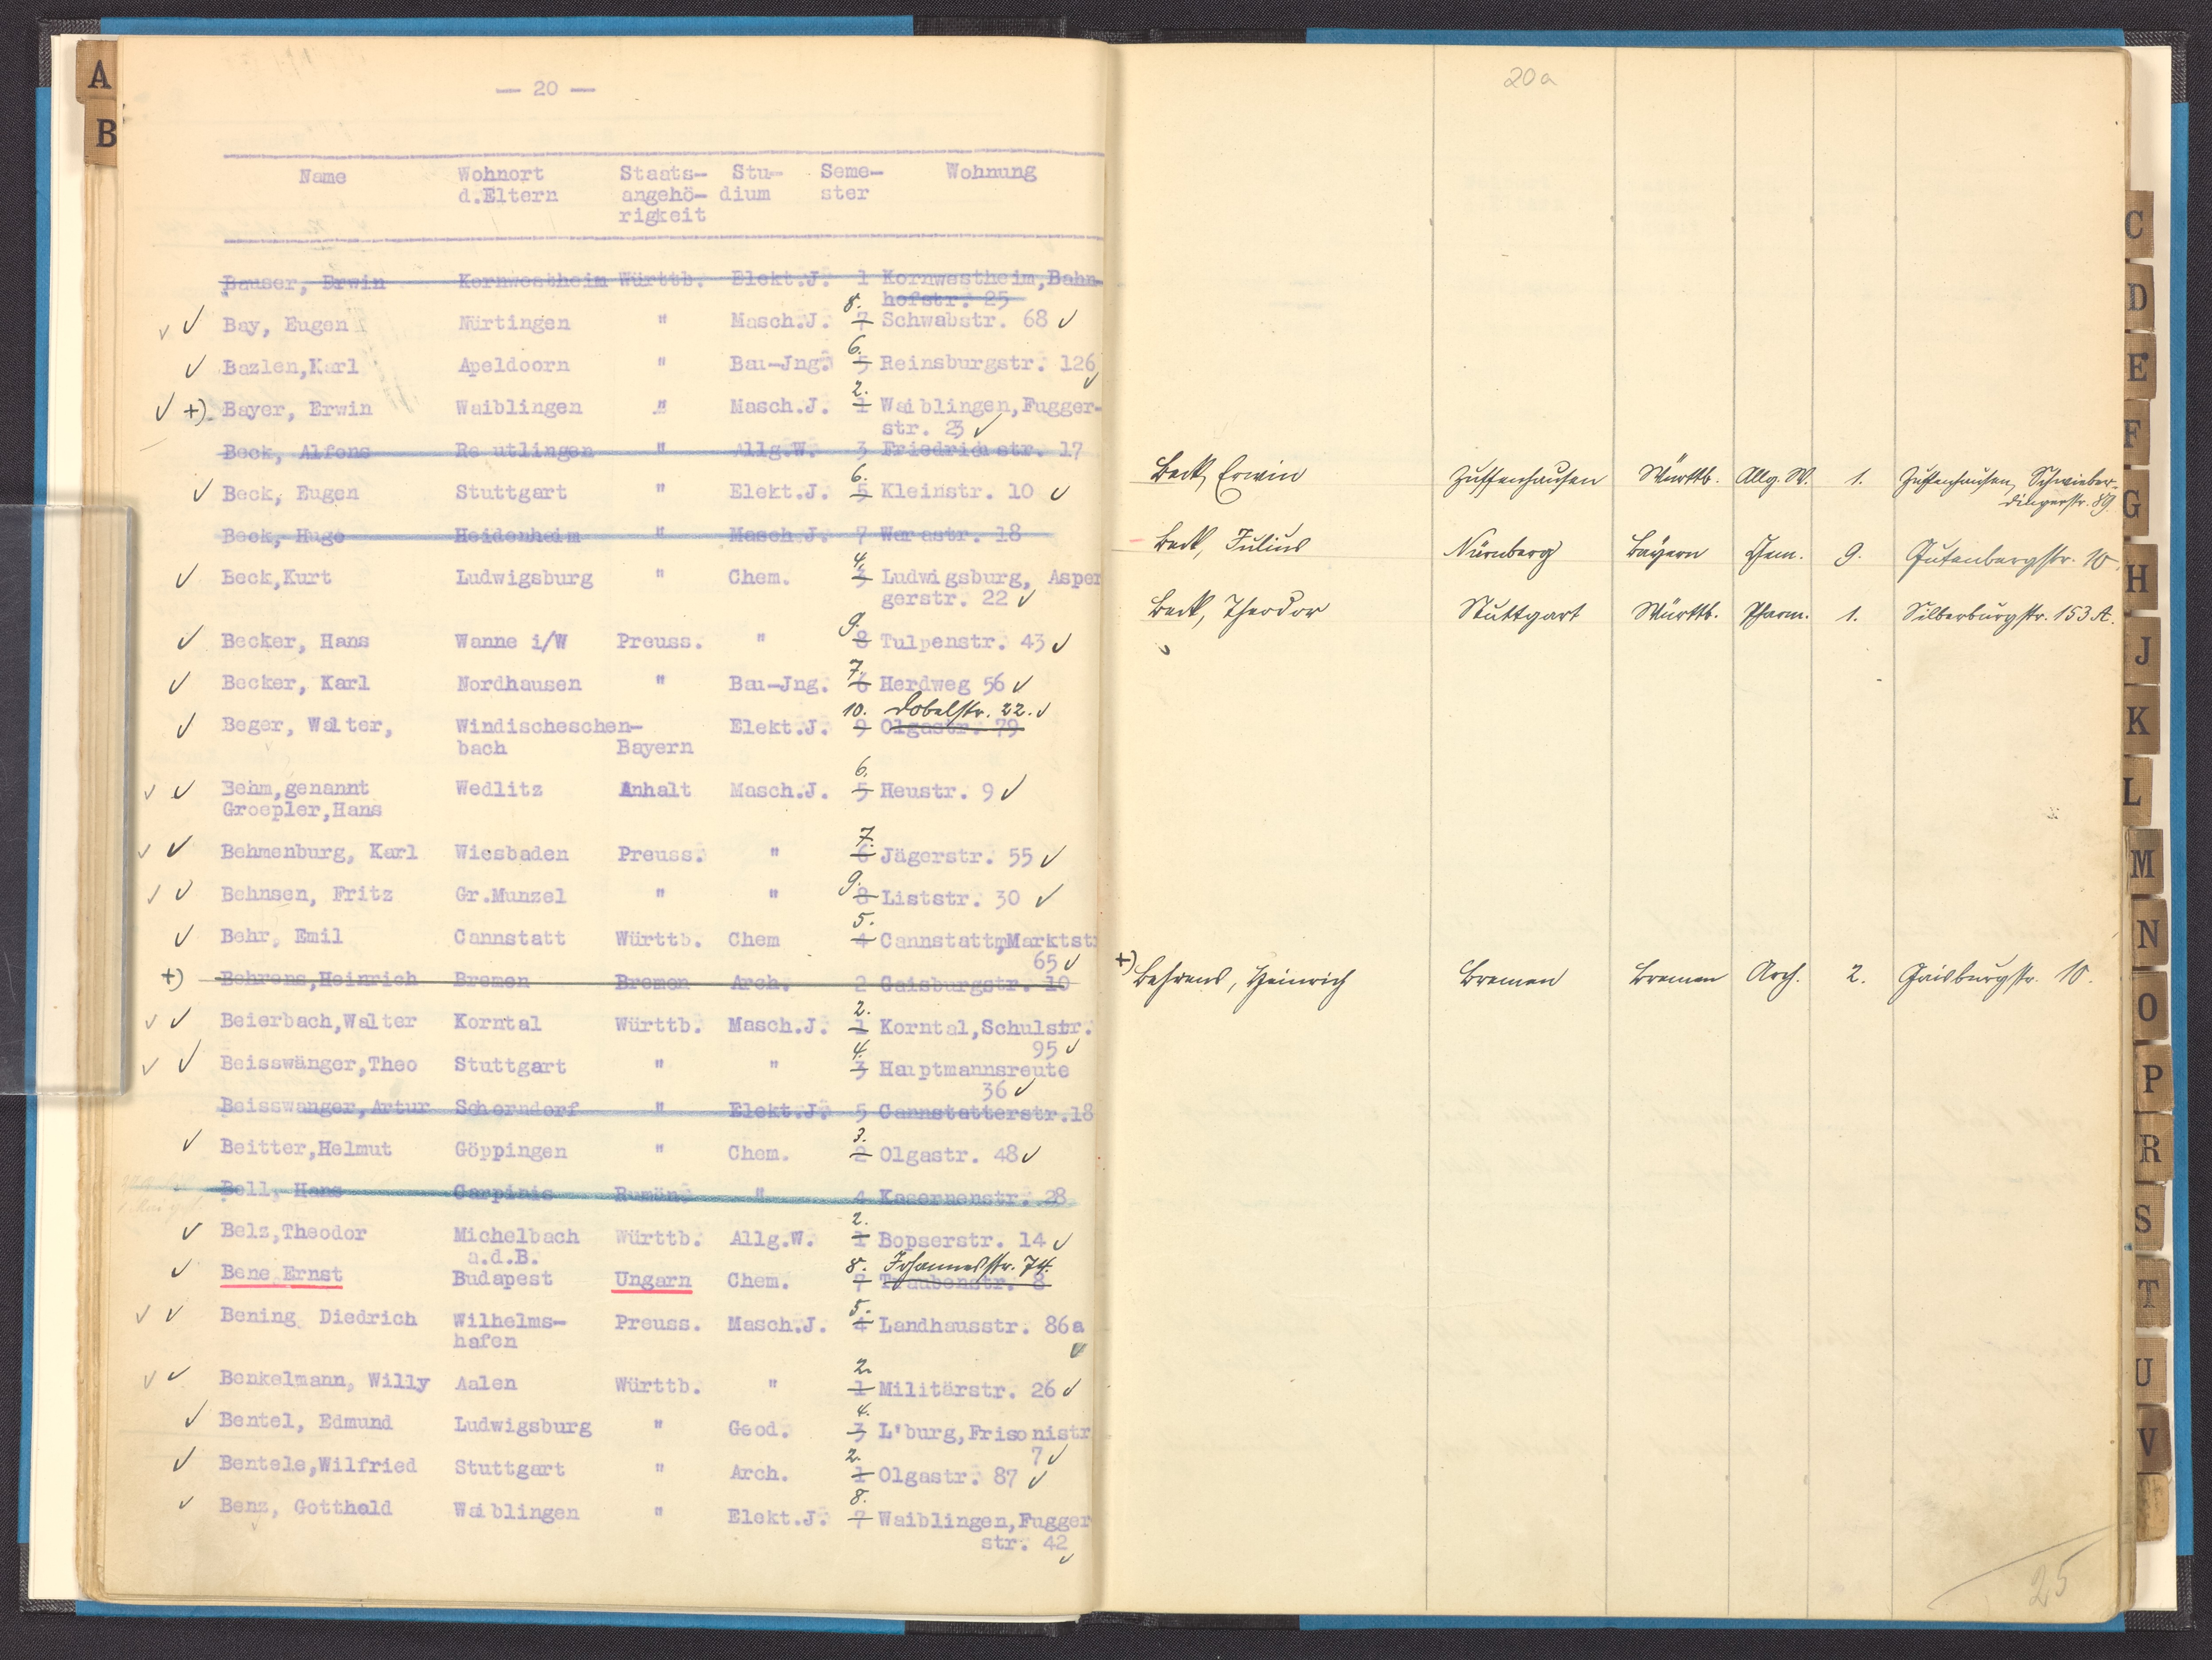 A
B
— 20 —
Name Wohnort Staats- Stu- Seme- Wohnung
d.Eltern angehö- dium ster
rigkeit
Bauser, Erwin Kornwestheim Württb. Elekt.J. 1 Kornwestheim,Bahn-
hofstr. 25
8.
Bay, Eugen Nürtingen " Masch.J. 7 Schwabstr. 68
6.
Bazlen,Karl Apeldoorn " Bau-Jng. 5 Reinsburgstr. 126
2.
+) Bayer, Erwin Waiblingen " Masch.J. 1 Waiblingen,Fugger-
str. 23
Beck, Alfons Reutlingen " Allg.W. 3 Friedrichstr. 17
6.
Beck, Eugen Stuttgart " Elekt.J. 5 Kleinstr. 10
Beck, Hugo Heidenheim " Masch.J. 7 Werastr. 18
4.
Beck,Kurt Ludwigsburg " Chem. 3 Ludwigsburg, Asper
gerstr. 22
9.
Becker, Hans Wanne i/W Preuss. " 8 Tulpenstr. 43
7.
Becker, Karl Nordhausen " Bau-Jng. 6 Herdweg 56
10. Dobelstr. 22.
Beger, Walter, Windischeschen- Elekt.J. 9 Olgastr. 79
bach Bayern
6.
Behm,genannt Wedlitz Anhalt Masch.J. 5 Heustr. 9
Groepler,Hans
7.
Behmenburg, Karl Wiesbaden Preuss. " 6 Jägerstr. 55
9.
Behnsen, Fritz Gr.Munzel " " 8 Liststr. 30
5.
Behr, Emil Cannstatt Württb. Chem 4 Cannstatt,Marktst
65
+) Behrens,Heinrich Bremen Bremen Arch. 2 Gaisburgstr. 10
2.
Beierbach,Walter Korntal Württb. Masch.J. 1 Korntal,Schulstr.
95
4.
Beisswänger,Theo Stuttgart " " 3 Hauptmannsreute
36
Beisswanger,Artur Schorndorf " Elekt.J. 5 Cannstatterstr.18
3.
Beitter,Helmut Göppingen " Chem. 2 Olgastr. 48
Bell, Hans Carpinis Rumän. " 4 Kasernenstr. 28
2.
Belz,Theodor Michelbach Württb. Allg.W. 1 Bopserstr. 14
a.d.B.
8. Johannesstr. 74.
Bene Ernst Budapest Ungarn Chem. 7 Traubenstr. 8
5.
Bening Diedrich Wilhelms- Preuss. Masch.J. 4 Landhausstr. 86a
hafen
2.
Benkelmann, Willy Aalen Württb. " 1 Militärstr. 26
4.
Bentel, Edmund Ludwigsburg " Geod. 3 L'burg,Frisonistr
7
2.
Bentele,Wilfried Stuttgart " Arch. 1 Olgastr. 87
8.
Benz, Gotthold Waiblingen " Elekt.J. 7 Waiblingen,Fugger
str. 42
20a
Beck, Erwin Zuffenhausen Württb. Allg. W. 1. Zuffenhausen, Schwieber-
dingerstr. 89.
Beck, Julius Nürnberg Bayern Chem. 9. Gutenbergstr. 10.
Beck, Theodor Stuttgart Württb. Pharm. 1. Silberburgstr. 153 A.
+) Behrens, Heinrich Bremen Bremen Arch. 2. Gaisburgstr. 10.
25
C
D
E
F
G
H
J
K
L
M
N
O
P
R
S
T
U
V